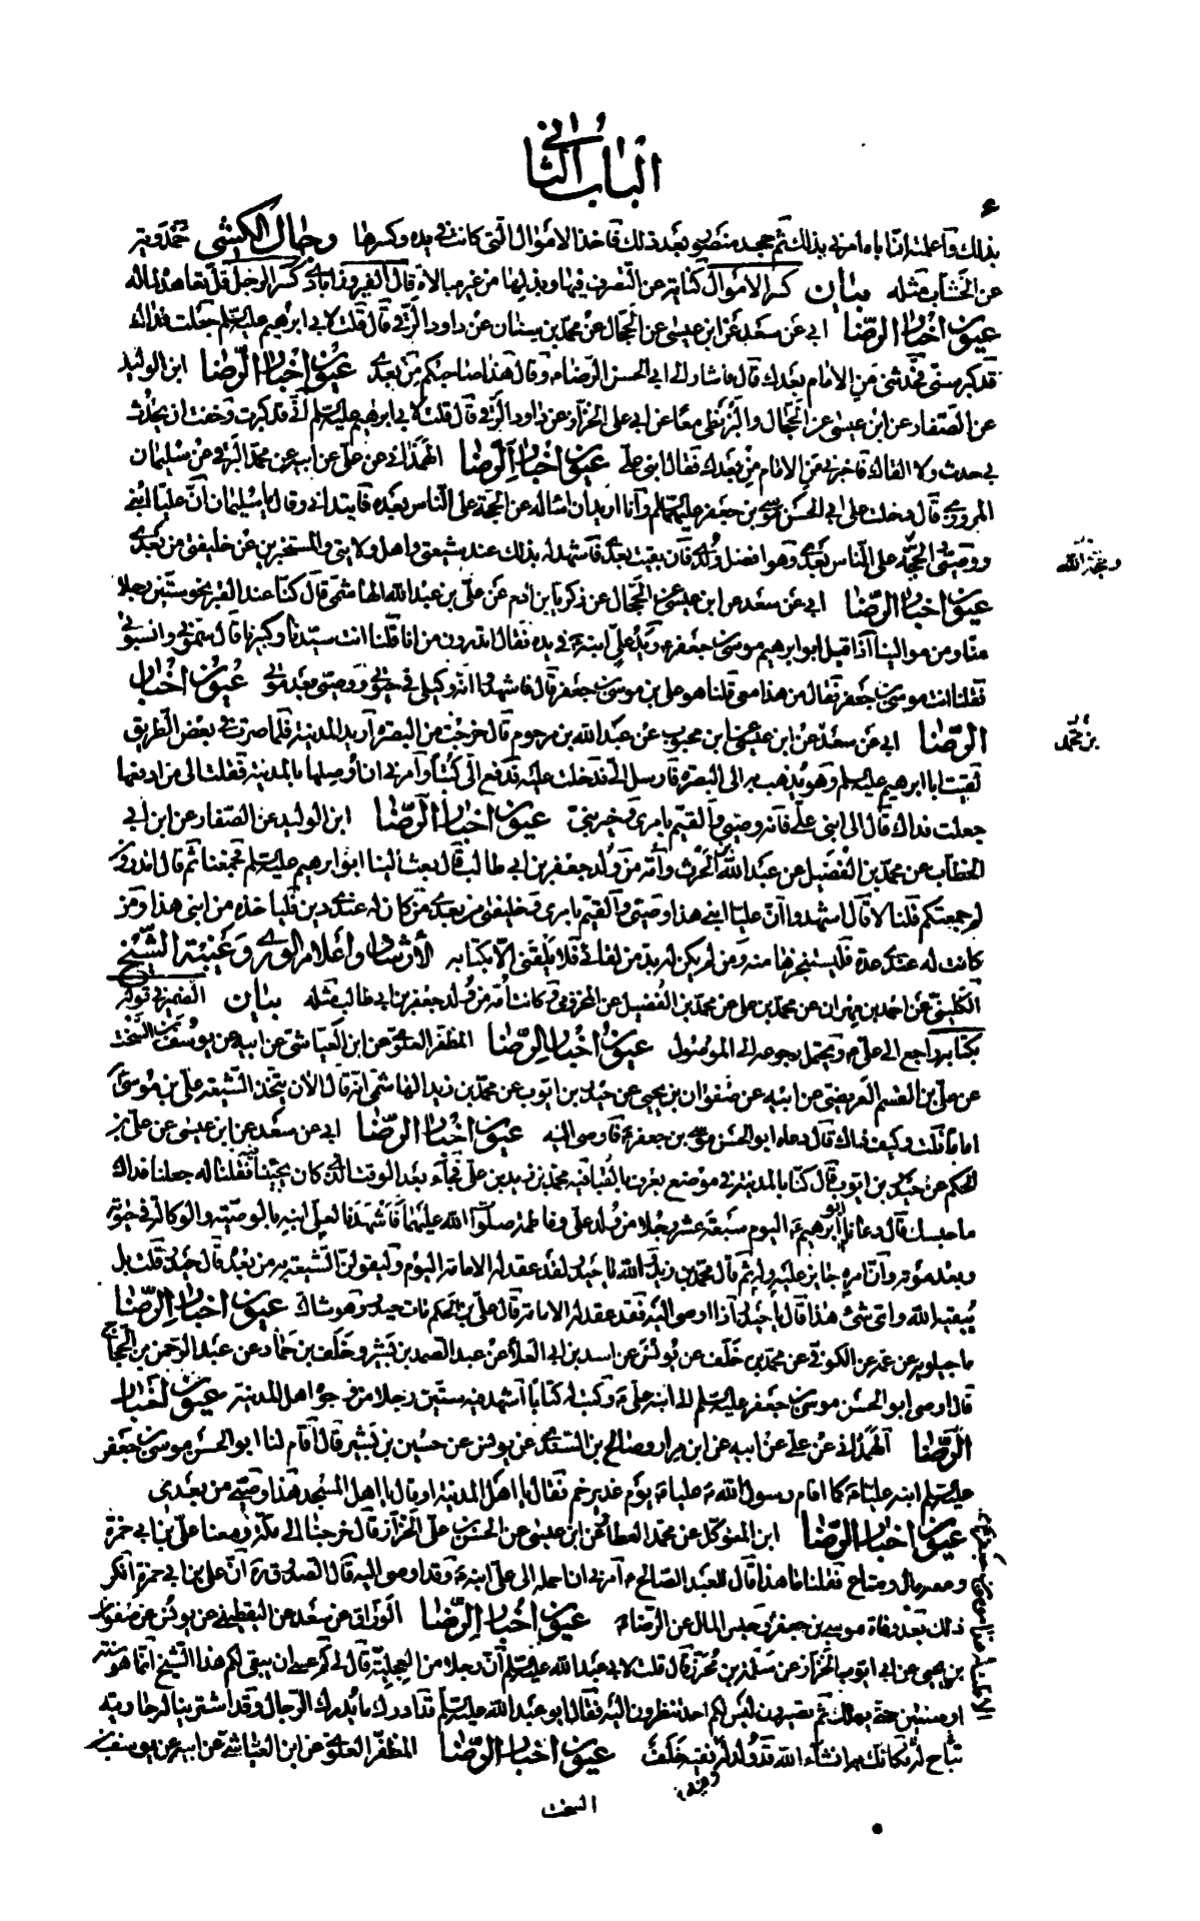 الباب الثانى
٤
بذلك وأعلمته انّ اباه امرنى بذلك ثم جحد منصور بعد ذلك فاخذ الاموال التى كانت فى يده وكسرها رجال الكشى حمدويه
عن الخشاب مثله بيان كسر الاموال كناية عن التصرف فيها وبذلها من غير مبالاة قال الفيروزابادى كسر الرجل قلّ تعاهده لماله
عيون اخبار الرضا ابى عن سعد عن ابن عيسى عن الحجال عن محمد بن سنان عن داود الرقى قال قلت لابى ابرهيم عليه السلم جعلت فداك
قد كبر سنى فحدثنى من الامام بعدك قال فاشار الى ابى الحسن الرضا ع وقال هذا صاحبكم من بعدى عيون اخبار الرضا ابن الوليد
عن الصفار عن ابن عيسى عن الحجال والبزنطى معا عن ابى على الخزاز عن داود الرقى قال قلت لابى ابرهيم عليه السلم انى قد كبرت وخفت ان يحدث
بى حدث ولا القاك فاخبرنى من الامام من بعدك فقال ابنى على عيون اخبار الرضا الهمدانى عن على عن ابيه عن محمد البرقى عن سليمان
المروزى قال دخلت على ابى الحسن موسى بن جعفر عليهما السلم وانا اريد ان اساله عن الحجة على الناس بعده فابتدانى وقال يا سليمان انّ عليا ابنى
ووصيّى الحجة على الناس بعدى وهو افضل ولدى فان بقيت بعدى فاشهد له بذلك عند شيعتى واهل ولايتى والمستخبرين عن خليفتى من بعدى
وحجة الله
عيون اخبار الرضا ابى عن سعد عن ابن عيسى عن الحجال عن زكريا بن ادم عن على بن عبد الله الهاشمى قال كنا عند القبر نحو ستين رجلا
منا ومن موالينا اذ اقبل ابو ابرهيم موسى بن جعفر ع ويد على ابنه ع فى يده فقال اتدرون من انا قلنا انت سيدنا وكبيرنا قال سمونى وانسبونى
فقلنا انت موسى بن جعفر فقال من هذا معى قلنا هو على بن موسى بن جعفر قال فاشهدوا انه وكيلى فى حيوتى ووصيى بعد موتى عيون اخبار
الرضا ابى عن سعد عن ابن عيسى عن ابن محبوب عن عبد الله بن مرحوم قال خرجت من البصرة اريد المدينة فلما صرت فى بعض الطريق
بن محمد
لقيت ابا ابرهيم عليه السلم وهو يذهب به الى البصرة فارسل الى فدخلت عليه فدفع الى كتبا وامرنى ان اوصلها بالمدينة فقلت الى من ادفعها
جعلت فداك قال الى ابنى على فانه وصيى والقيم بامرى وخير بنى عيون اخبار الرضا ابن الوليد عن الصفار عن ابن ابى
الخطاب عن محمد بن الفضيل عن عبد الله بن الحرث وامه من ولد جعفر بن ابى طالب قال بعث الينا ابو ابرهيم عليه السلم فجمعنا ثم قال اتدرون
لم جمعتكم قلنا لا قال اشهدوا ان عليا ابنى هذا وصيى والقيم بامرى وخليفتى من بعدى من كان له عندى دين فلياخذه من ابنى هذا ومن
كانت له عندى عدة فليستنجزها منه ومن لم يكن له بد من لقائى فلا يلقنى الا بكتابه الارشاد واعلام الورى وغيبة الشيخ
الكلينى عن احمد بن مهران عن محمد بن على عن محمد بن الفضيل عن المخزومى وكانت امه من ولد جعفر بن ابى طالب مثله بيان الضمير فى قوله
بكتابه راجع الى على ع ويحتمل رجوعه الى الموصول عيون اخبار الرضا المظفر العلوى عن ابن العياشى عن ابيه عن يوسف بن السخت
عن على بن القسم العريضى عن ابيه عن صفوان بن يحيى عن حيدر بن ايوب عن محمد بن زيد الهاشمى انه قال الان يتخذ الشيعة على بن موسى ع
اماما قلت وكيف ذاك قال دعاه ابو الحسن موسى بن جعفر ع فاوصى اليه عيون اخبار الرضا ابى عن سعد عن ابن عيسى عن على بن
الحكم عن حيدر بن ايوب قال كنا بالمدينة فى موضع يعرف بالقبا فيه محمد بن زيد بن على فجاء بعد الوقت الذى كان يجيئنا فيه فقلنا له جعلنا فداك
ما حبسك قال دعانا ابو ابرهيم ع اليوم سبعة عشر رجلا من ولد على وفاطمة صلوات الله عليهما فاشهدنا لعلى ابنه بالوصية والوكالة فى حيوته
وبعد موته وان امره جايز عليه وله ثم قال محمد بن زيد والله يا حيدر لقد عقد له الامامة اليوم وليقولن الشيعة به من بعده قال حيدر قلت بل
يبقيه الله واى شئ هذا قال يا حيدر اذا اوصى اليه فقد عقد له الامامة قال على بن الحكم مات حيدر وهو شاك عيون اخبار الرضا
ماجيلويه عن عمه عن الكوفى عن محمد بن خلف عن يونس عن اسد بن ابى العلاء عن عبد الصمد بن بشير وخلف بن حماد عن عبد الرحمن بن الحجاج
قال اوصى ابو الحسن موسى بن جعفر عليه السلم الى ابنه على ع وكتب له كتابا اشهد فيه ستين رجلا من وجوه اهل المدينة عيون اخبار
الرضا الهمدانى عن على عن ابيه عن ابن مرار وصالح بن السندى عن يونس عن حسين بن بشير قال اقام لنا ابو الحسن موسى بن جعفر
عليه السلم ابنه عليا ع كما اقام رسول الله ص عليا ع يوم غدير خم فقال يا اهل المدينة او قال يا اهل المسجد هذا وصيى من بعدى
عيون اخبار الرضا ابن المتوكل عن محمد العطار عن ابن عيسى عن الحسن بن على الخزاز قال خرجنا الى مكة ومعنا على بن ابى حمزة
ومعه مال ومتاع فقلنا ما هذا قال للعبد الصالح ع امرنى ان احمله الى على ابنه ع وقد اوصى اليه قال الصدوق ره ان على بن ابى حمزة انكر
ذلك بعد وفاة موسى بن جعفر وحبس المال عن الرضا ع عيون اخبار الرضا الوراق عن سعد عن اليقطينى عن يونس عن صفوان
بن يحيى عن ابى ايوب الخزاز عن سلمة بن محرز قال قلت لابى عبد الله عليه السلم ان رجلا من العجلية قال لى كم عسى ان يبقى لكم هذا الشيخ انما هو سنة
او سنتين حتى يهلك ثم تصيرون ليس لكم احد تنظرون اليه فقال ابو عبد الله عليه السلم قد ادرك ما يدرك الرجال وقد اشترينا له جارية
تباح له فكانك به انشاء الله قد ولد له فقيه خلف عيون اخبار الرضا المظفر العلوى عن ابن العياشى عن ابيه عن يوسف بن
السخت